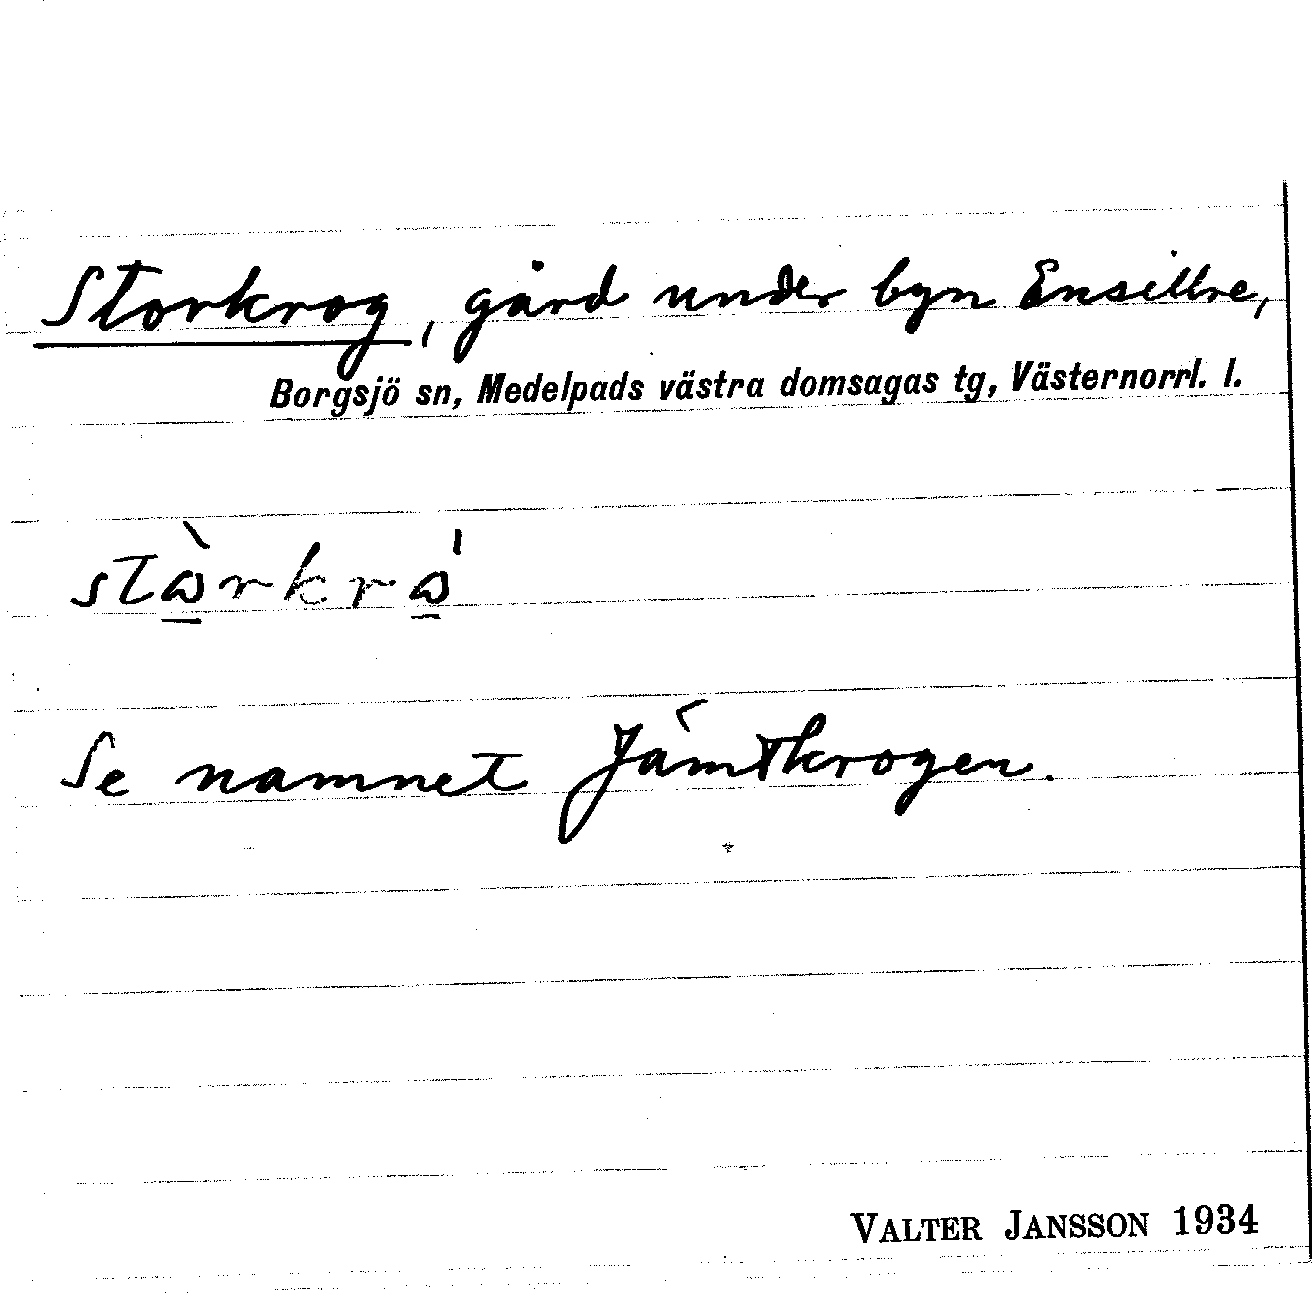 Storkrog, gård under byn Ensillre,
Borgsjö sn, Medelpads västra domsagas tg, Västernorrl. l.
Se namnet Jämtkrogen.
VALTER JANSSON 1934